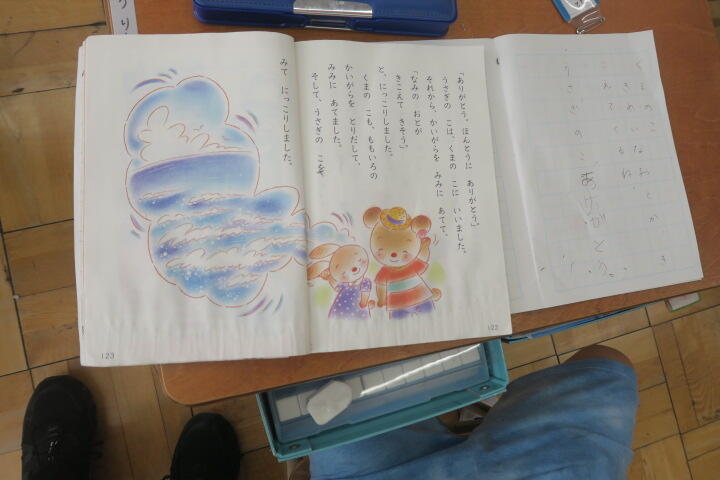 くまのこ
うさぎのこ ありがとう
「ありがとう。ほんとうに ありがとう。」
うさぎの こは、くまの こに いいました。
それから、かいがらを みみに あてて、
「なみの おとが
きこえて きそう。」
と、にっこりしました。
くまの こも、ももいろの
かいがらを とりだして、
みみに あてました。
そして、うさぎの こを
122
みて にっこりしました。
123